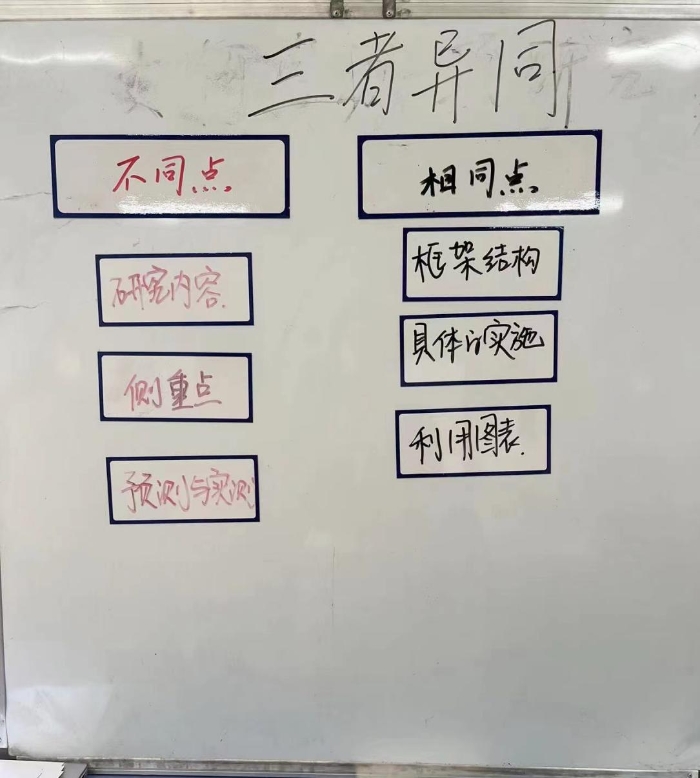 三者异同
不同点
研究内容.
侧重点
预测与实测
相同点
框架结构
具体的实施
利用图表.